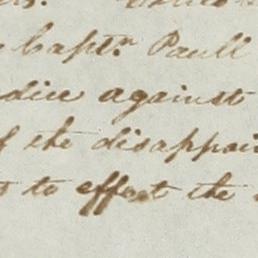 Captn. Paull
against
the disappoi
to effect the